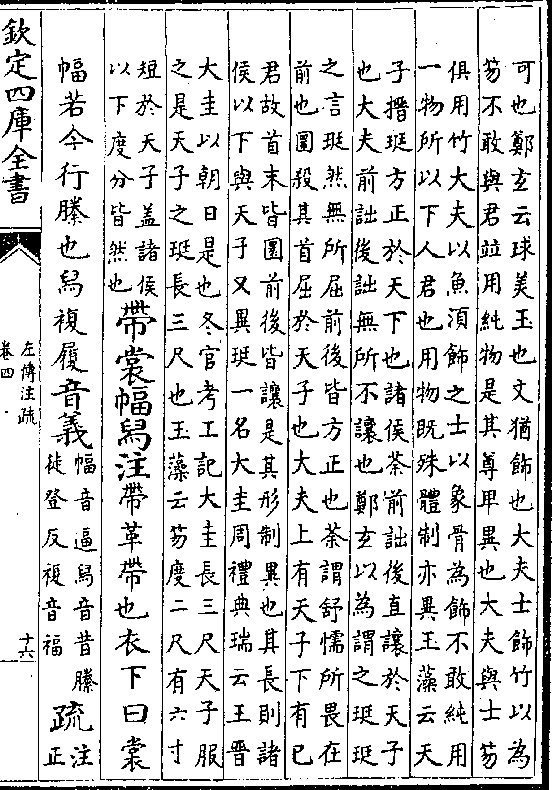 可也鄭玄云球美玉也文猶飾也大夫士飾竹以為
笏不敢與君竝用純物是其尊卑異也大夫與士笏
俱用竹大夫以魚湏飾之士以象骨為飾不敢純用
一物所以下人君也用物既殊體制亦異玉藻云天
子搢珽方正於天下也諸侯荼前詘後直讓於天子
也大夫前詘後詘無所不讓也鄭玄以為謂之珽珽
之言珽然無所屈前後皆方正也荼謂舒懦所畏在
前也圜殺其首屈於天子也大夫上有天子下有已
君故首末皆圜前後皆讓是其形制異也其長則諸
侯以下與天子又異珽一名大圭周禮典瑞云王晉
大圭以朝日是也冬官考工記大圭長三尺天子服
之是天子之珽長三尺也玉藻云笏度二尺有六寸
短於天子盖諸侯
以下度分皆然也
帶裳幅舄注帶革帶也衣下曰裳
幅若今行縢也舄複履音義
幅音逼舄音昔縢
徒登反複音福
疏
注
正
欽定四庫全書
左傳注疏
卷四
十六